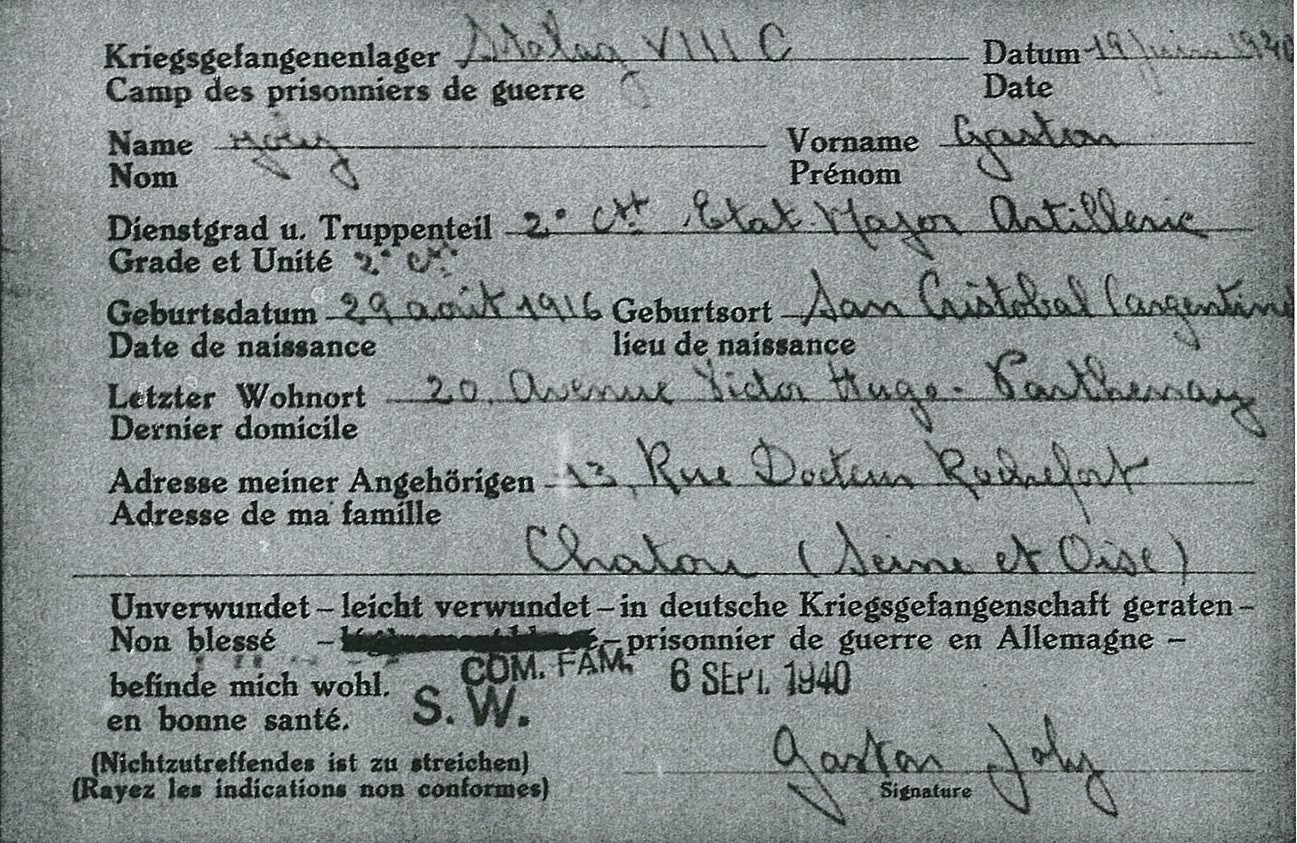 Kriegsgefangenenlager Stalag VIII C Datum 19 Juin 1940
Camp des prisonniers de guerre Date
Name Vorname Gaston
Nom Prénom
Dienstgrad u. Truppenteil 2° Ctt Etat-Major Artillerie
Grade et Unité 2° Ctt
Geburtsdatum 29 août 1916 Geburtsort San Cristobal (argentine
Date de naissance lieu de naissance
Letzter Wohnort 20, Avenue Victor Hugo - Parthenay
Dernier domicile
Adresse meiner Angehörigen 13, Rue Docteur Rochefort
Adresse de ma famille
Chatou (Seine et Oise)
Unverwundet – leicht verwundet – in deutsche Kriegsgefangenschaft geraten –
Non blessé – – prisonnier de guerre en Allemagne –
COM. FAM. 6 SEPT. 1940
befinde mich wohl.
S. W.
en bonne santé.
(Nichtzutreffendes ist zu streichen) Gaston Joly
(Rayez les indications non conformes) Signature